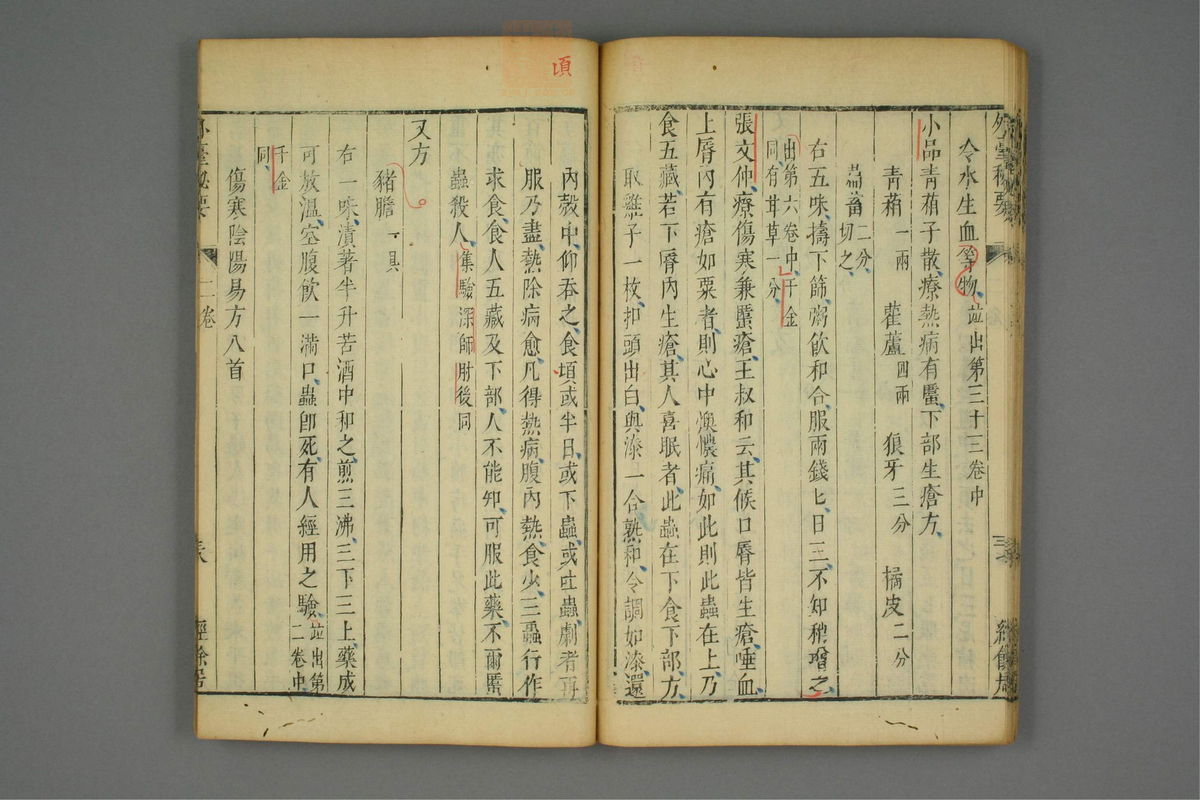 冷水生血等物、並出第三十三卷中
小品青葙子散、療熱病有䘌、下部生瘡方、
青葙一兩 雚蘆四兩 狼牙三分 橘皮二分
萹蓄二分、切之、
右五味、擣下篩、粥飲和合、服兩錢匕、日三、不知稍增之、
出第六卷中、千金同、有甘草一分、
張文仲、療傷寒兼䘌瘡、王叔和云、其候口脣皆生瘡、唾血、
上脣內有瘡如粟者、則心中懊憹痛、如此則此蟲在上、乃
食五藏、若下脣內生瘡、其人喜眠者、此蟲在下、食下部、方、
取雞子一枚、扣頭出白、與漆一合熟和、令調如漆、還
內殼中、仰吞之、食頃或半日、或下蟲、或吐蟲、劇者再
服乃盡、熱除病愈、凡得熱病、腹內熱、食少、三蟲行作
求食、食人五藏及下部、人不能知、可服此藥、不爾䘌
蟲殺人、集驗深師肘後同
又方
豬膽一具
右一味、漬著半升苦酒中和之、煎三沸、三下三上、藥成
可放溫、空腹飲一滿口、蟲即死、有人經用之驗、並出第二卷中、
千金同、
傷寒陰陽易方八首
二卷
項